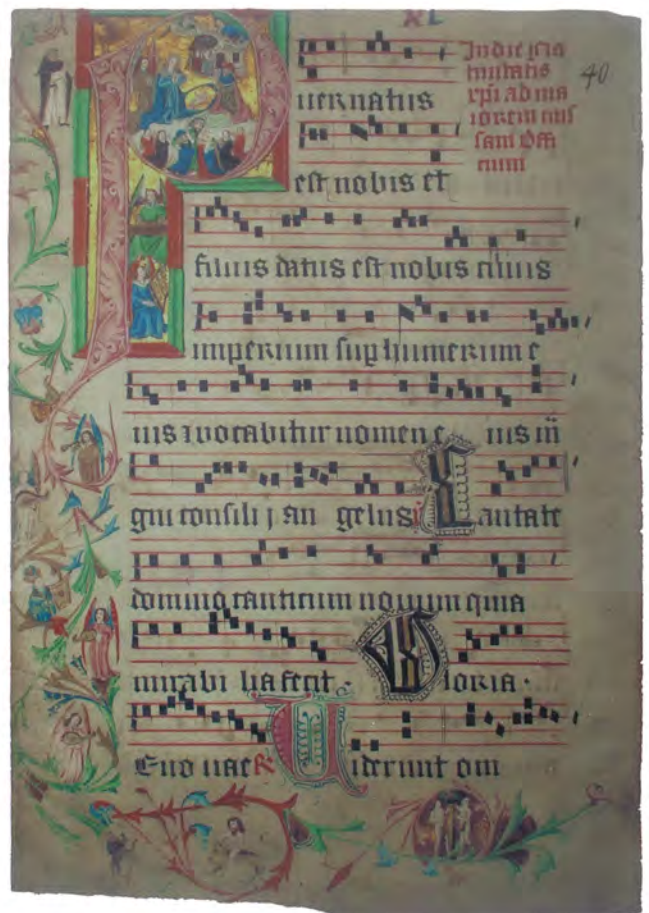 XL
In die scia
natiuitatis
xpi ad ma
iorem mis
sam Offi
cium
40
P
uer natus
est nobis et
filius datus est nobis cuius
imperium sup humerum e
ius i vocabitur nomen e ius m
gni consilij an gelus v Cantate
domino canticum novum quia
mirabi lia fecit · Gloria ·
Euouae R Uiderunt om